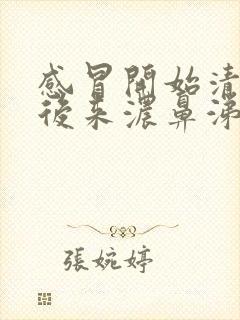 感冒開始清
後來濃鼻涕
張婉婷